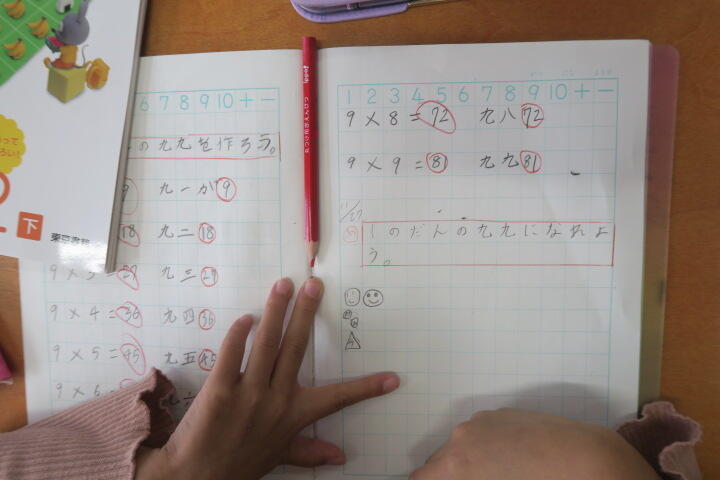 下
東京書籍
6 7 8 9 10 + −
の九九を作ろう。
九一が9
18 九二18
9×3=27 九三27
9×4=36 九四36
9×5=45 九五45
9×6
1 2 3 4 5 6 7 8 9 10 + −
9×8=72 九八72
9×9=81 九九81
11/27
1のだんの九九になれよ
う。